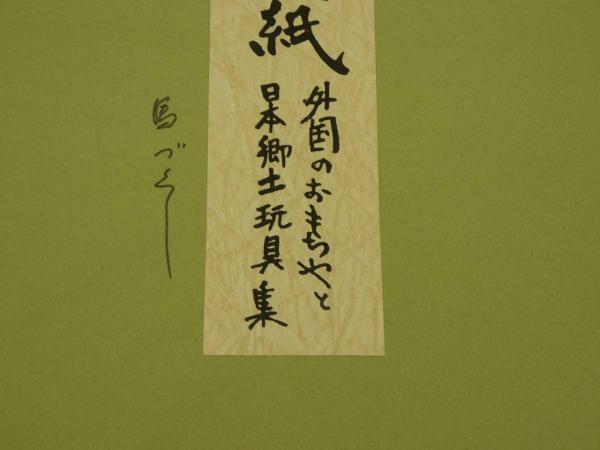 紙
外国のおもちゃと
日本郷土玩具集
馬づくし